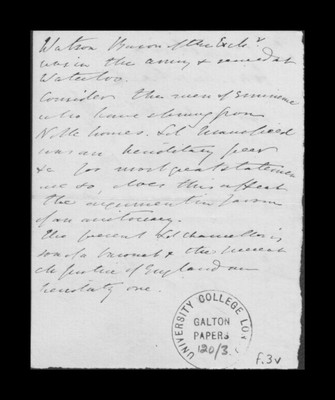 Watson Baron of the Exchr
was in the army & served at
Waterloo.
Consider the men of eminence
who have sprung from
Noble homes. Ld Mansfield
was an hereditary peer
&c for most great statesmen
are so, does this affect
the argument in favour
of an aristocracy.
The present Ld Chancellor is
son of a baronet & the present
ch justice of England an
heredity one.
UNIVERSITY COLLEGE LO
GALTON
PAPERS
120/3
f.3v